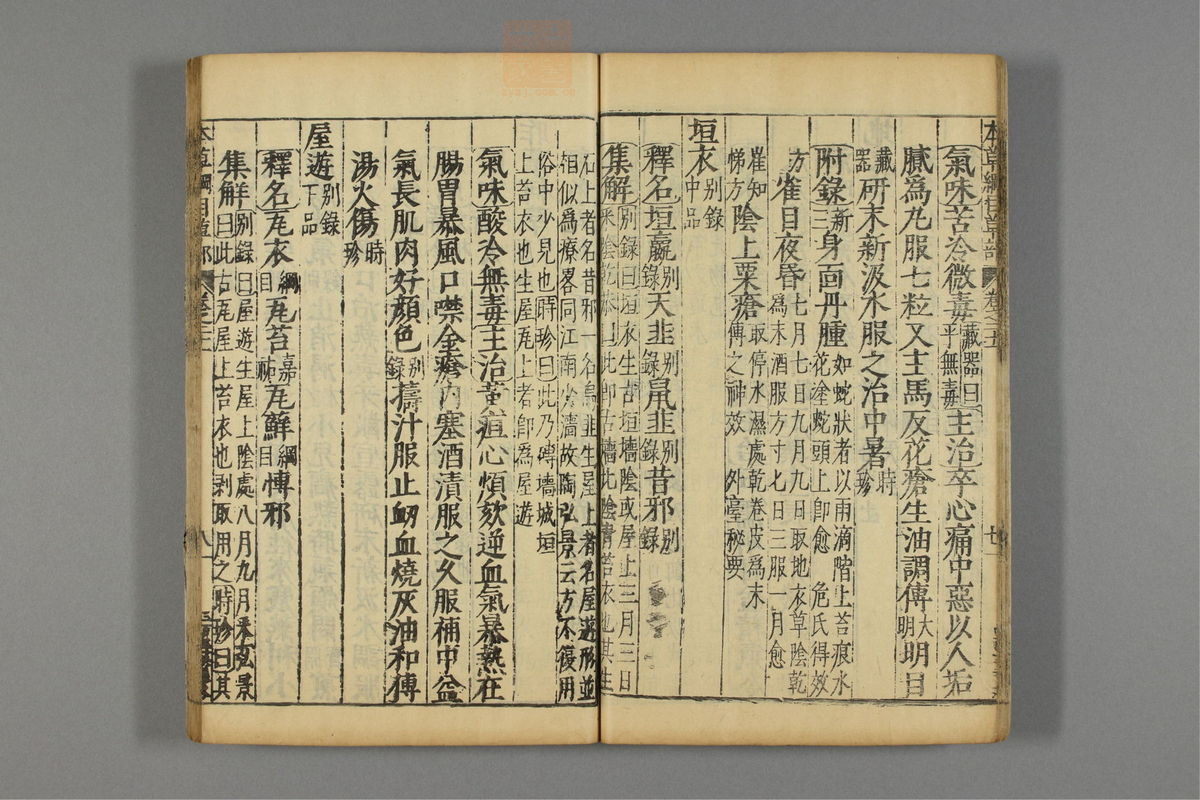 氣味苦冷微毒藏器曰平無毒主治卒心痛中惡以人垢
膩為丸服七粒又主馬反花瘡生油調傅大明明目
藏器研末新汲水服之治中暑時珍
附錄新三身面丹腫如蛇狀者以雨滴階上苔痕水花塗蛇頭上卽愈 危氏得效
方雀目夜昏七月七日九月九日取地衣草陰乾為末酒服方寸匕日三服一月愈
崔知悌方陰上粟瘡取停水濕處乾卷皮為末傅之神效 外臺秘要
垣衣別錄中品
釋名垣嬴別錄天韭別錄鼠韭別錄昔邪別錄
集解別錄曰垣衣生古垣墻陰或屋上三月三日采陰乾恭曰此卽古墻北陰靑苔衣也其生
石上者名昔邪一名烏韭生屋上者名屋遊形並相似為療畧同江南少墻故陶弘景云方不復用
俗中少見也時珍曰此乃磚墻城垣上苔衣也生屋瓦上者卽為屋遊
氣味酸冷無毒主治黃疸心煩欬逆血氣暴熱在
腸胃暴風口噤金瘡內塞酒漬服之久服補中益
氣長肌肉好顏色別錄擣汁服止衂血燒灰油和傅
湯火傷時珍
屋遊別錄下品
釋名瓦衣綱目瓦苔嘉祐瓦蘚綱目慱邪
集解別錄曰屋遊生屋上陰處八月九月采弘景曰此古瓦屋上苔衣也剥取用之時珍曰其